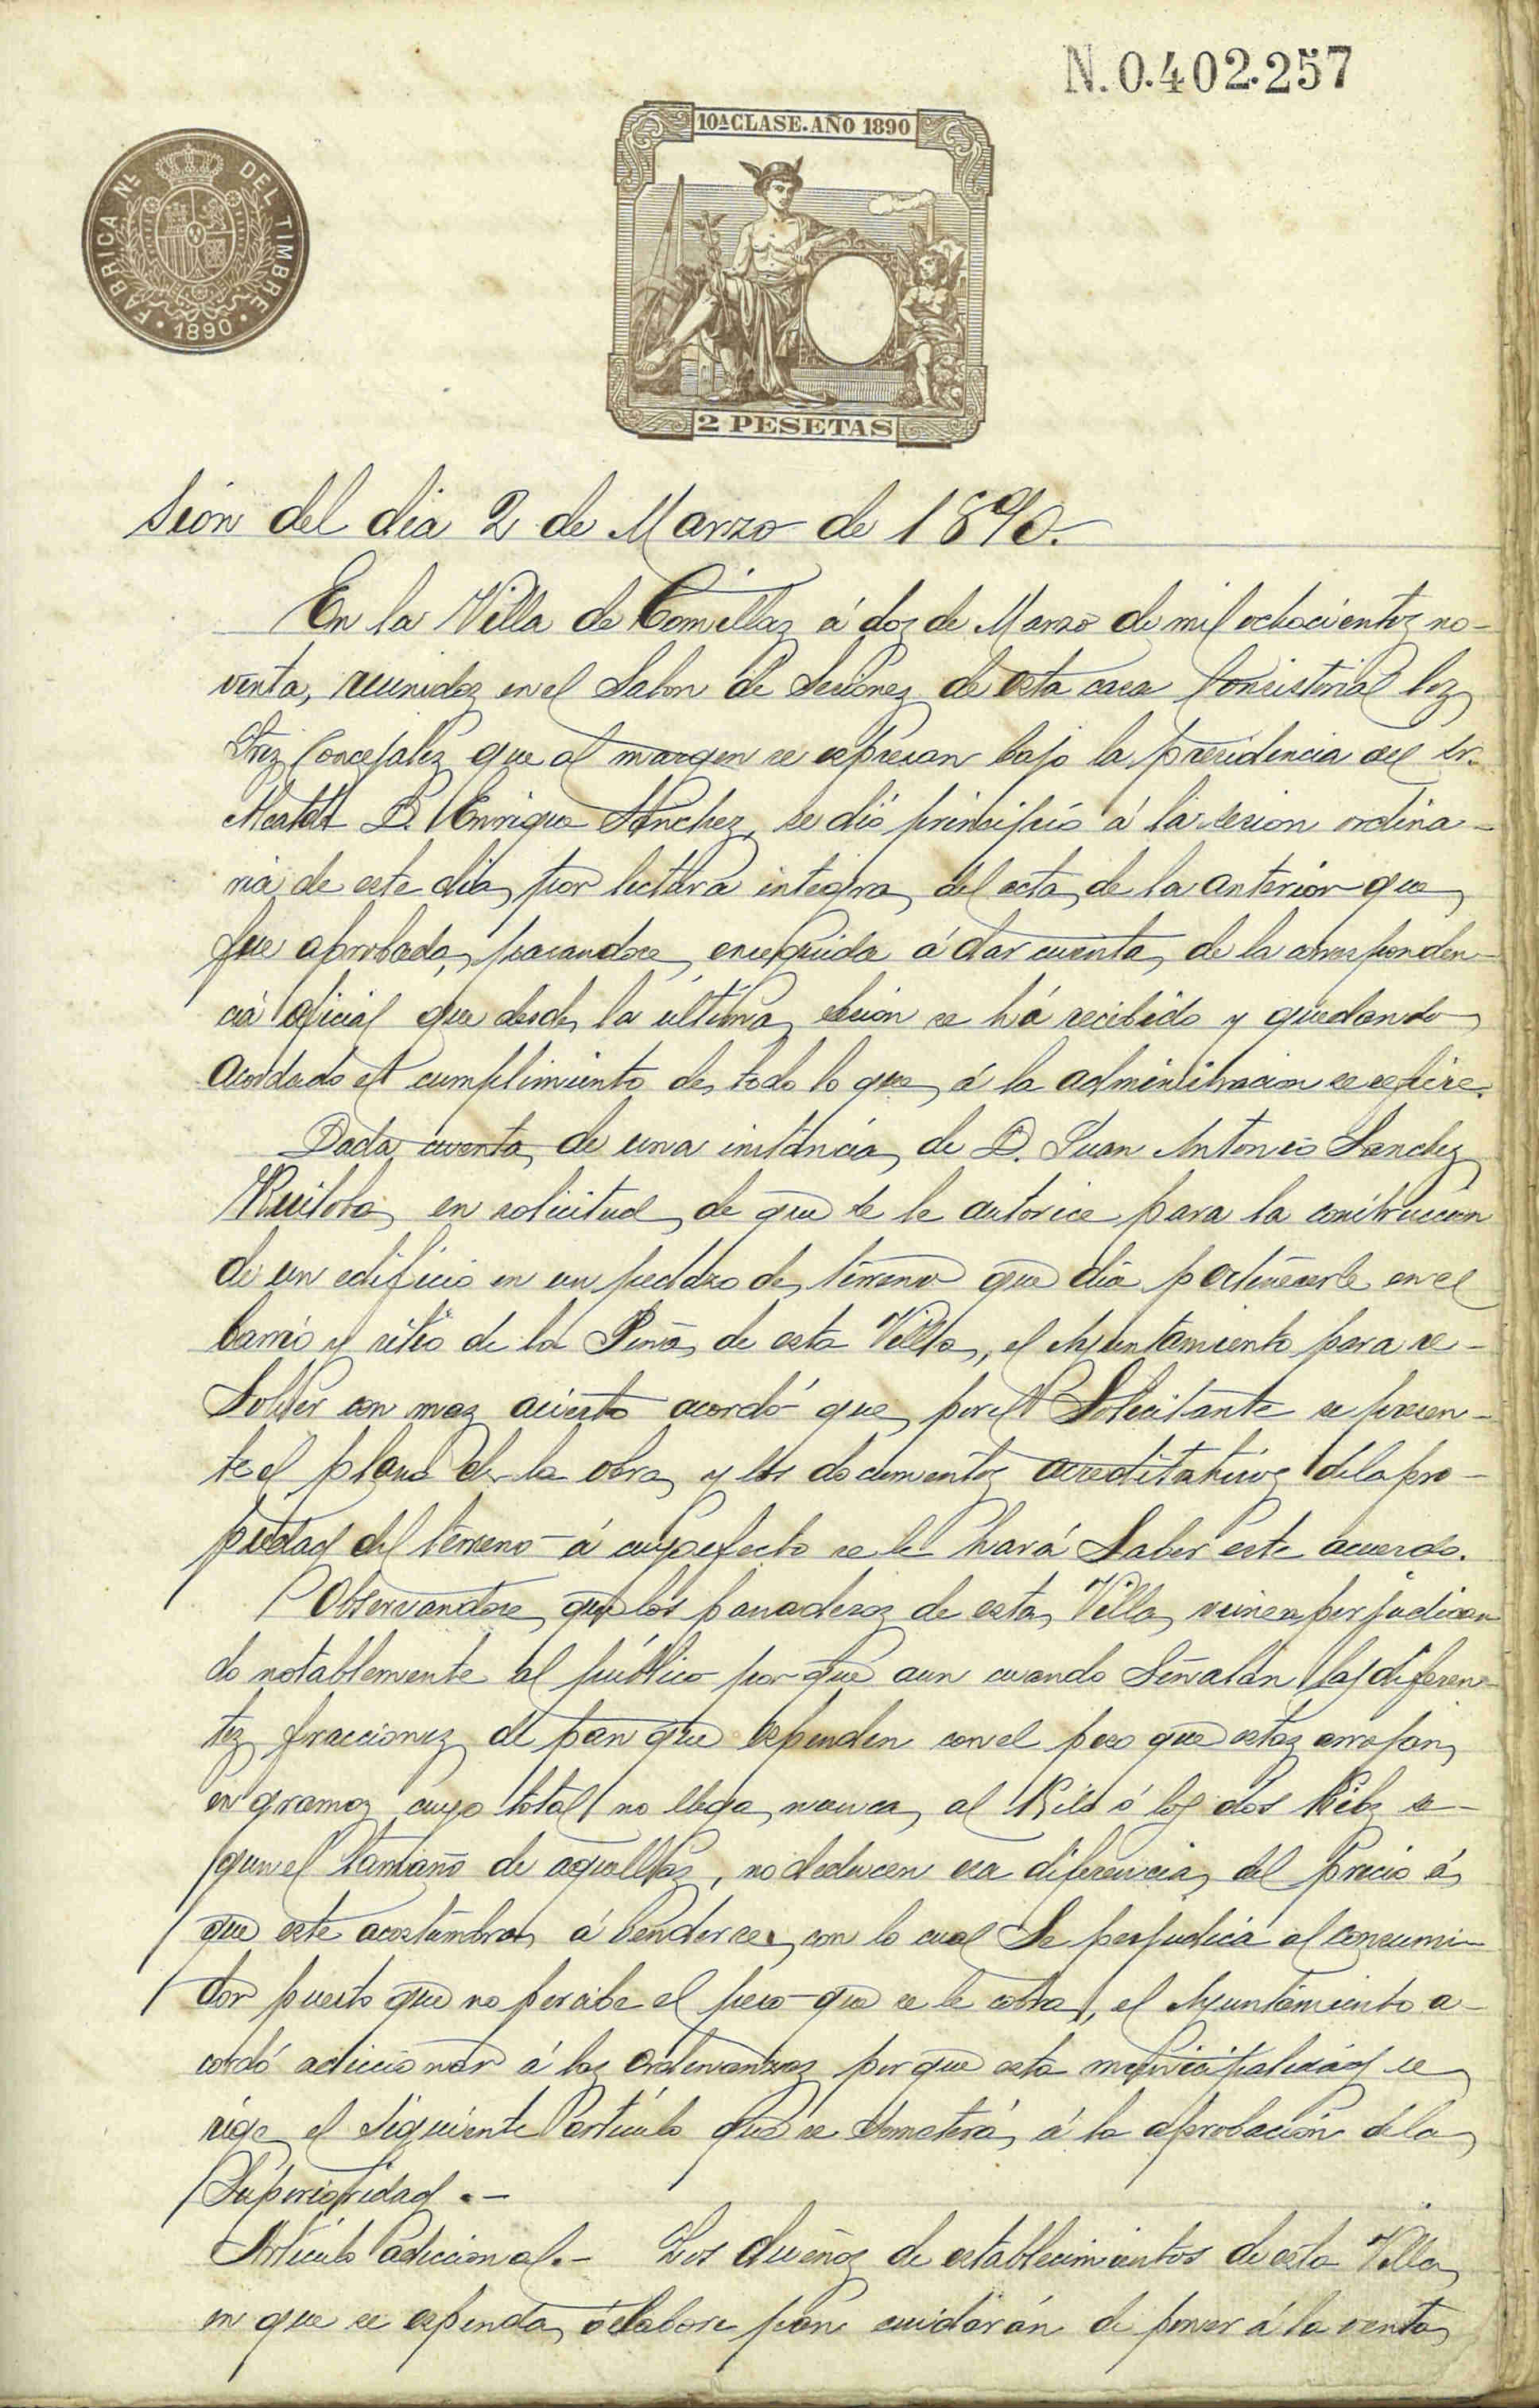 N. 0.402.257
10ª CLASE. AÑO 1890
FABRICA Nˡ DEL TIMBRE
· 1890 ·
2 PESETAS
sión del dia 2 de Marzo de 1890.
En la Villa de Comillas á dos de Marzo de mil ochocientos no-
venta, reunidos en el Salon de Sesiones de esta casa Consistorial los
Sres Concejales que al margen se espresan bajo la presidencia del Sr.
Alcalde D. Enrique Sanchez, se dió principio á la sesion ordina-
ria de este dia, por lectura integra del acta de la anterior que
fue aprobada, pasandose enseguida á dar cuenta de la corresponden-
cia oficial que desde la última sesion se há recibido y quedando
acordado el cumplimiento de todo lo que á la administracion se refiere.
Dada cuenta de una instáncia de D. Juan Antonio Sanchez
Ruiloba en solicitud de que se le autorice para la construccion
de un edificio en un pedazo de terreno que dia pertenecerle en el
barrio y sitio de la Peña de esta Villa, el Ayuntamiento para re-
solver con mas acierto acordó que por el Solicitante se presen-
te el plano de la obra y los documentos acreditativos de la pro-
piedad del terreno á cuyo efecto se le hará saber este acuerdo.
Observandose que los panaderos de esta Villa vienen perjudican
do notablemente al público por que aun cuando Señalan las diferen-
tes fracciones de pan que espenden con el peso que estas arrojan,
en gramos cuyo total no llega nunca al Kilo ó los dos Kilos se-
gun el tamaño de aquellas, no deducen esa diferencia del precio á
que este acostumbra á benderse, con lo cual se perjudica al consumi-
dor puesto que no percibe el peso que se le cobra, el Ayuntamiento a-
cordó adiccionar á las ordenanzas por que esta municipalidad se
rige el siguiente articulo que se someterá á la aprobacion de la
Superioridad.-
Articulo adiccional.- Los dueños de establecimientos de esta Villa
en que se espenda ó elabore pan cuidarán de poner á la venta